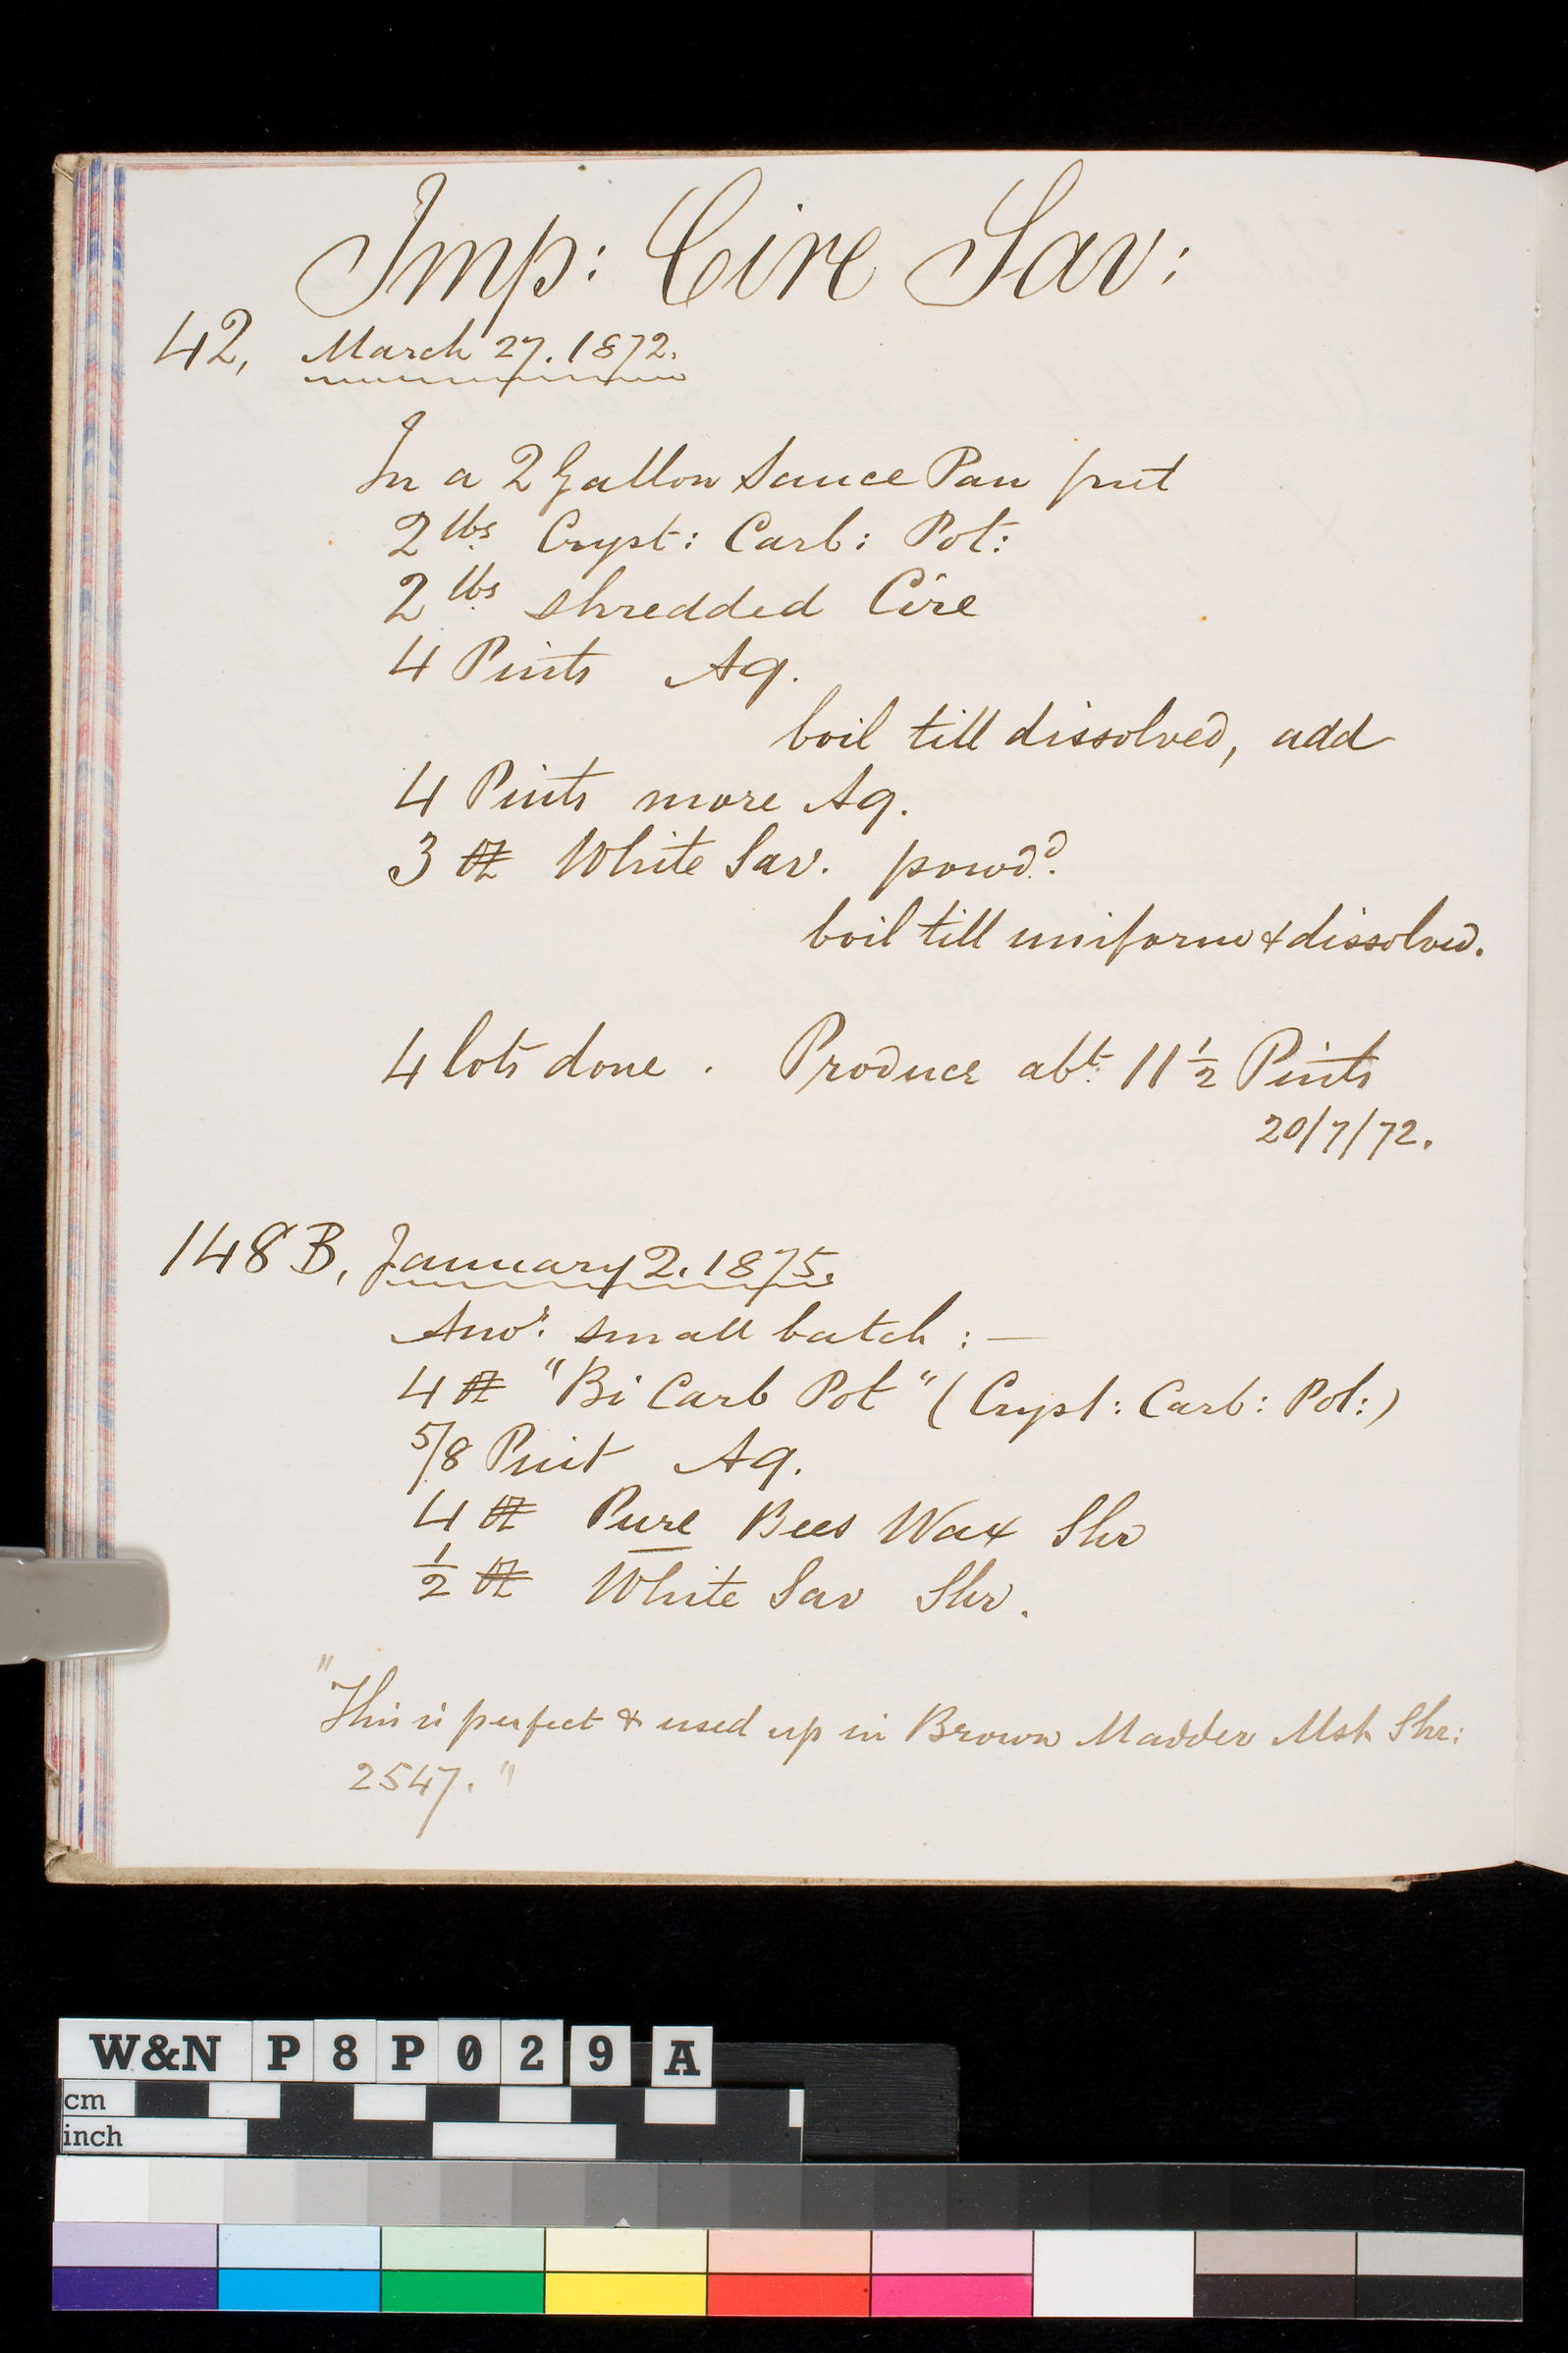 Imp: Cire Sav:
42, March 27. 1872.
In a 2 Gallon Sauce Pan put
2 lbs Cryst: Carb: Pot:
2 lbs shredded Cire
4 Pints Aq.
boil till dissolved, add
4 Pints more Aq.
3 oz White Sav. powdd.
boil till uniform & dissolved.
4 lots done. Produce abt. 11 1/2 Pints
20/7/72.
148B, January 2. 1875.
Anor. small batch :—
4 oz "Bi Carb Pot" (Cryst: Carb: Pot:)
5/8 Pint Aq.
4 oz Pure Bees Wax Shr
1/2 oz White Sav Shr.
"This is perfect & used up in Brown Madder Mst Shr:
2547."
W&N P8P029 A
cm
inch